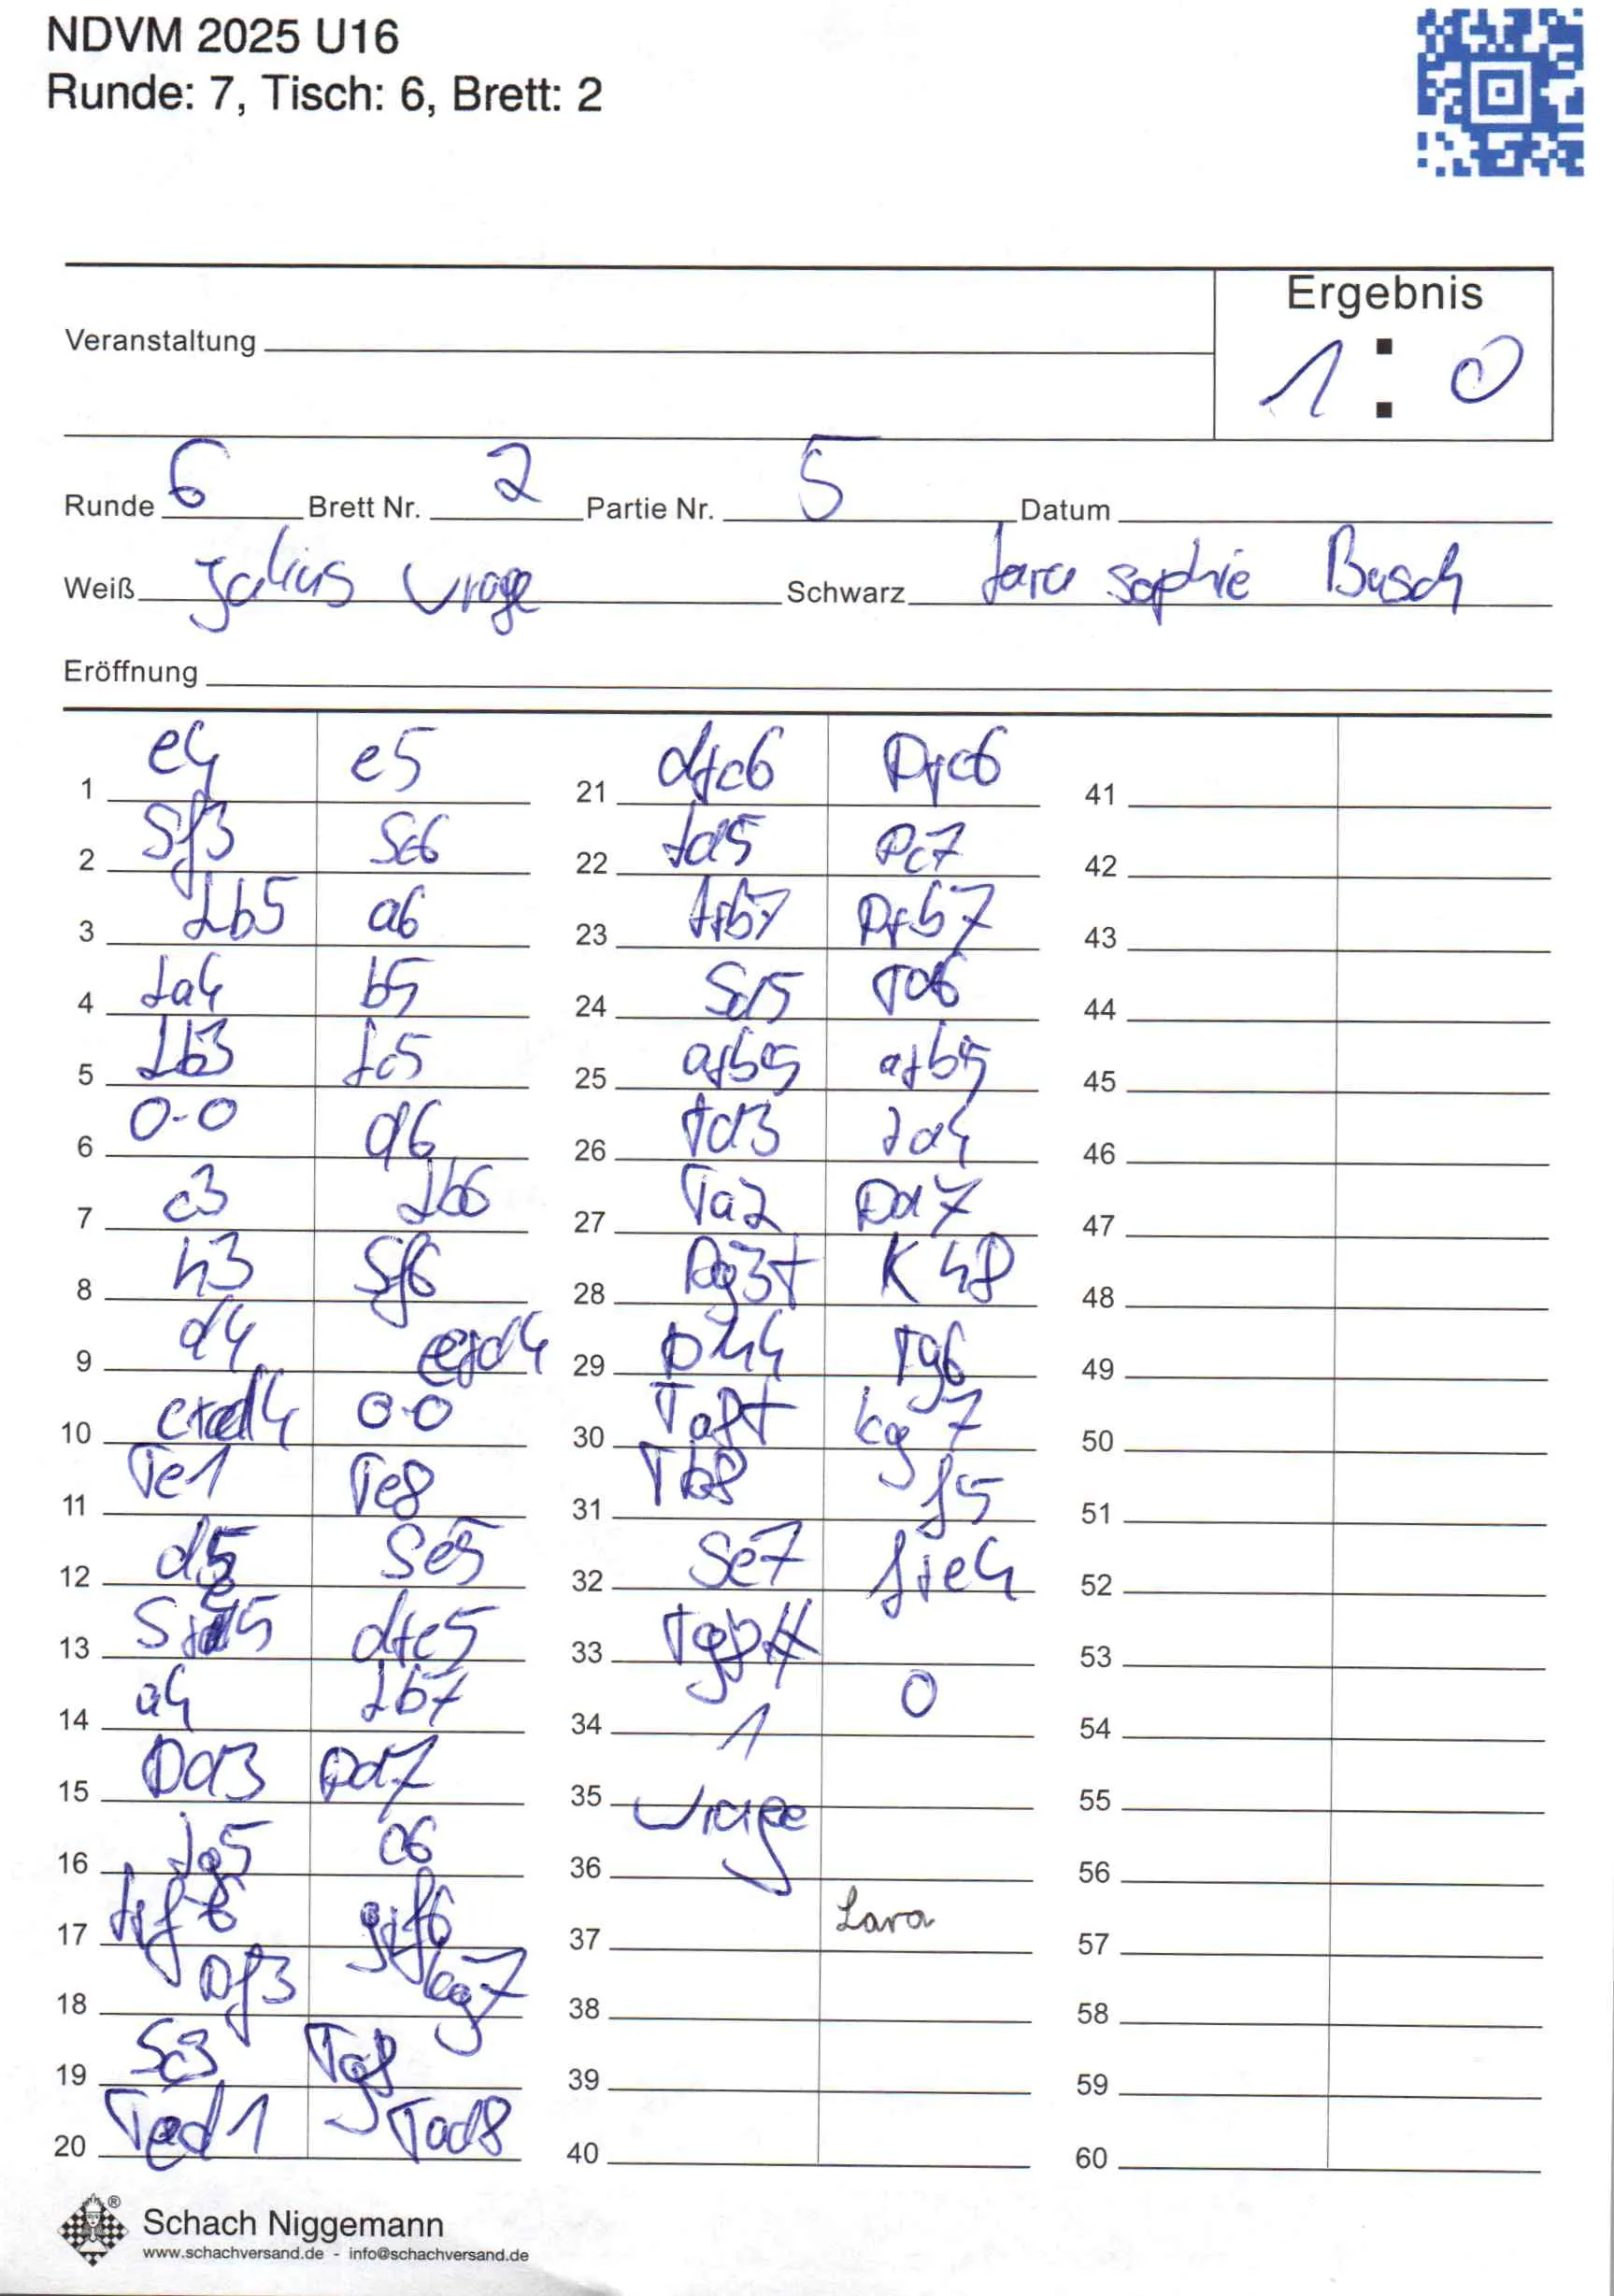 NDVM 2025 U16
Runde: 7, Tisch: 6, Brett: 2
Ergebnis
Veranstaltung
1 : 0
Runde 6 Brett Nr. 2 Partie Nr. 5 Datum
Weiß Julius Schwarz Lara sophie Busch
Eröffnung
1 e4 e5
2 Sf3 Sc6
3 Lb5 a6
4 La4 b5
5 Lb3 Lc5
6 0-0 d6
7 c3 Lb6
8 h3 Sf6
9 d4 exd4
10 cxd4 0-0
11 Te1 Te8
12 d5 Se5
13 Sxe5 dxe5
14 a4 Lb7
15 Dd3 Dd7
16 Lg5 c6
17 Lxf6 gxf6
18 Df3 Kg7
19 Sc3 Tg8
20 Ted1 Tad8
21 dxc6 Dxc6
22 Ld5 Dc7
23 Lxb7 Dxb7
24 Sd5 Td6
25 axb5 axb5
26 Td3 Ld4
27 Ta2 Dd7
28 Dg3+ Kh8
29 Dh4 Tg6
30 Ta8+ Kg7
31 Tb8 f5
32 Se7 fxe4
33 Tg8#
34 1 0
35
36
37 Lara
38
39
40
41
42
43
44
45
46
47
48
49
50
51
52
53
54
55
56
57
58
59
60
Schach Niggemann
www.schachversand.de - info@schachversand.de